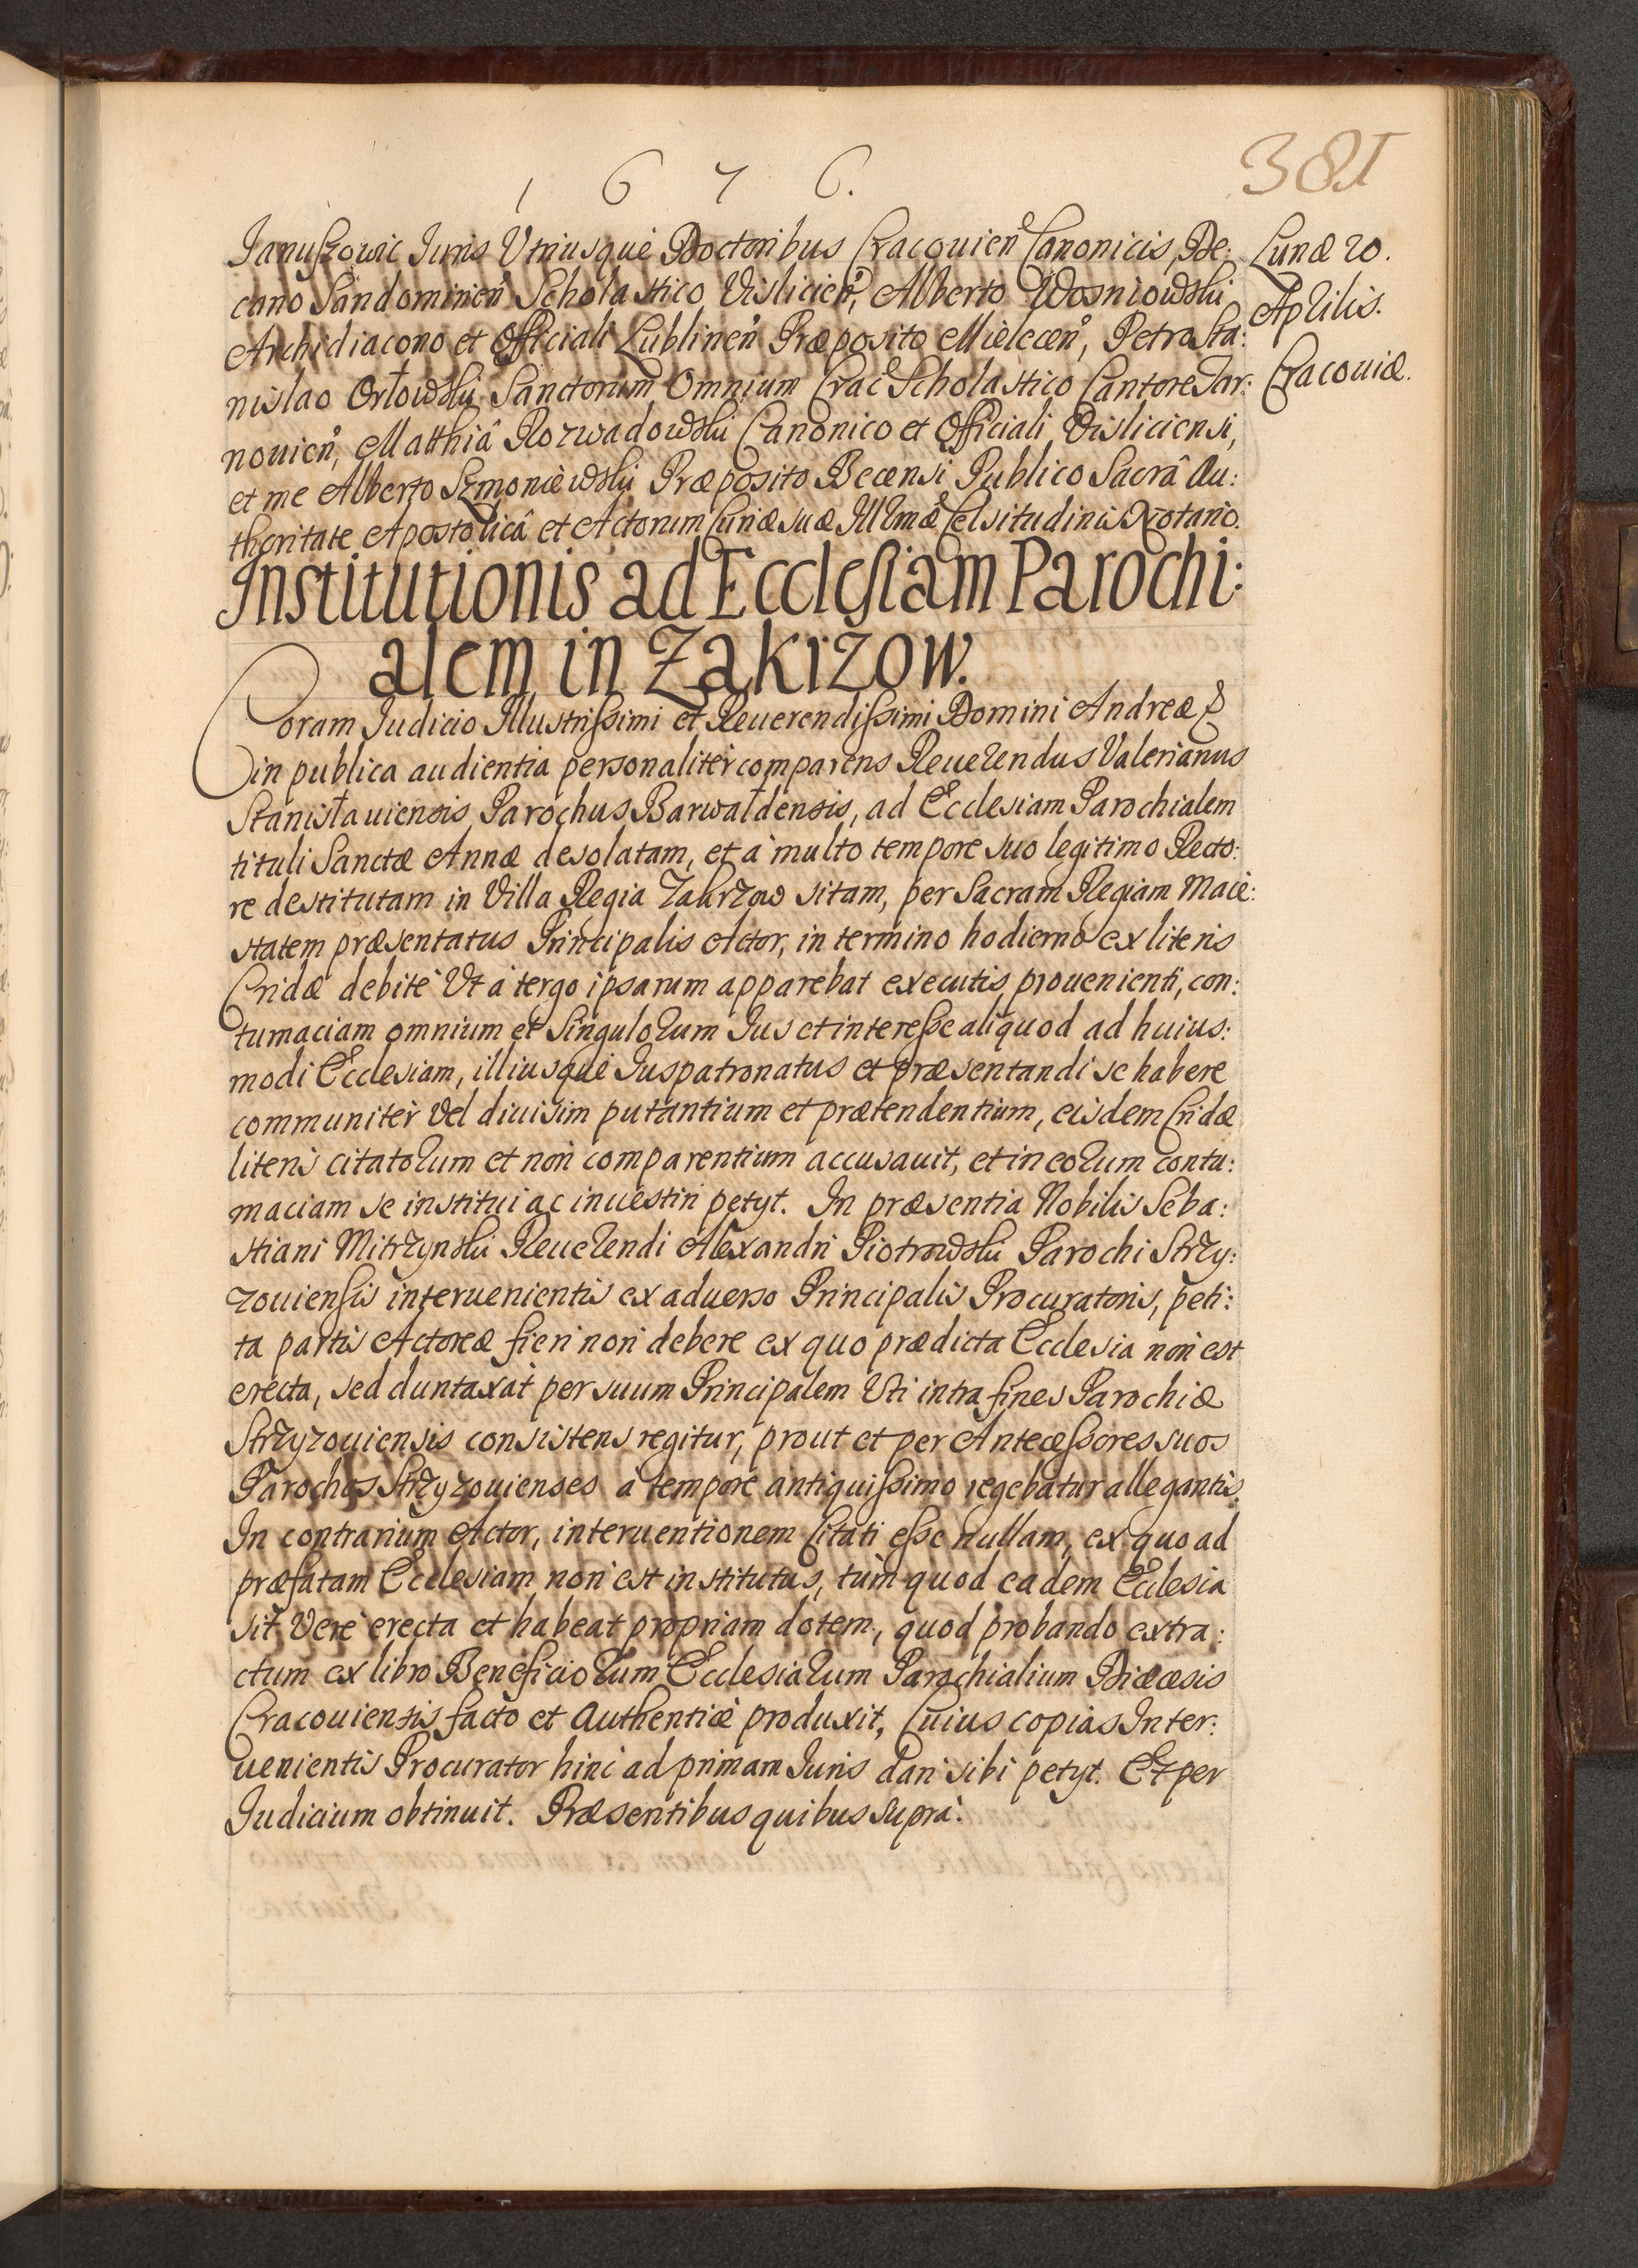 1 6 7 6.
381
Januszowic Juris Utriusque Doctoribus Cracouien Canonicis, De:
cano Sandomirien Scholastico Vislicien, Alberto Wosniowski
Archidiacono et Officiali Lublinen Præposito Mielecen, Petro Sta:
nislao Orłowski Sanctorum Omnium Crac Scholastico Cantore Tar:
nouien, Matthiâ Rozwadowski Canonico et Officiali Visliciensi,
et me Alberto Szmoniewski Præposito Becensi Publico Sacrâ Au:
thoritate Apostolicâ et Actorum Curiæ suæ Illmæ Celsitudinis Notario.
Lunæ 20.
Aprilis.
Cracouiæ.
Institutionis ad Ecclesiam Parochi:
alem in Zakrzow.
Coram Judicio Illustrissimi et Reuerendissimi Domini Andreæ &
in publica audientia personaliter comparens Reuerendus Valerianus
Stanisłauiensis Parochus Barwałdensis, ad Ecclesiam Parochialem
tituli Sanctæ Annæ desolatam, et à multo tempore suo legitimo Recto:
re destitutam in Villa Regia Zakrzow sitam, per Sacram Regiam Maie:
statem præsentatus Principalis Actor, in termino hodierno ex literis
Cridæ debitè Vt à tergo ipsarum apparebat executis prouenienti, con:
tumaciam omnium et Singulorum Jus et interesse aliquod ad huius:
modi Ecclesiam, illiusque Juspatronatus et præsentandi se habere
communiter Vel diuisim putantium et prætendentium, eisdem Cridæ
literis citatorum et non comparentium accusauit, et in eorum contu:
maciam se institui ac inuestiri petyt. In præsentia Nobilis Seba:
stiani Mitrzynski Reuerendi Alexandri Piotrowski Parochi Strzy:
zouiensis interuenientis ex aduerso Principalis Procuratoris, peti:
ta partis Actoreæ fieri non debere ex quo prædicta Ecclesia non est
erecta, sed duntaxat per suum Principalem Vti intra fines Parochiæ
Strzyzouiensis consistens regitur, prout et per Antecessores suos
Parochos Strzyzouienses à tempore antiquissimo regebatur allegantis.
In contrarium Actor, interuentionem Citati esse nullam, ex quo ad
præfatam Ecclesiam non est institutus, tùm quod eadem Ecclesia
sit Verè erecta et habeat propriam dotem, quod probando extra:
ctum ex libro Beneficiorum Ecclesiarum Parochialium Diæcesis
Cracouiensis facto et Authenticè produxit, Cuius copias Inter:
uenientis Procurator hinc ad primam Juris dari sibi petyt. Et per
Judicium obtinuit. Præsentibus quibus supra.